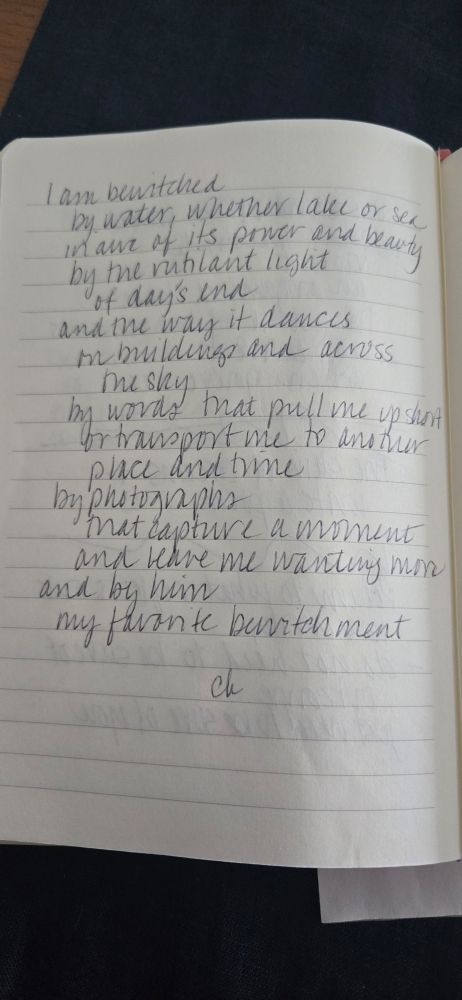 I am bewitched
by water, whether lake or sea
in awe of its power and beauty
by the rutilant light
of day's end
and the way it dances
on buildings and across
the sky
by words that pull me up short
or transport me to another
place and time
by photographs
that capture a moment
and leave me wanting more
and by him
my favorite bewitchment
ck